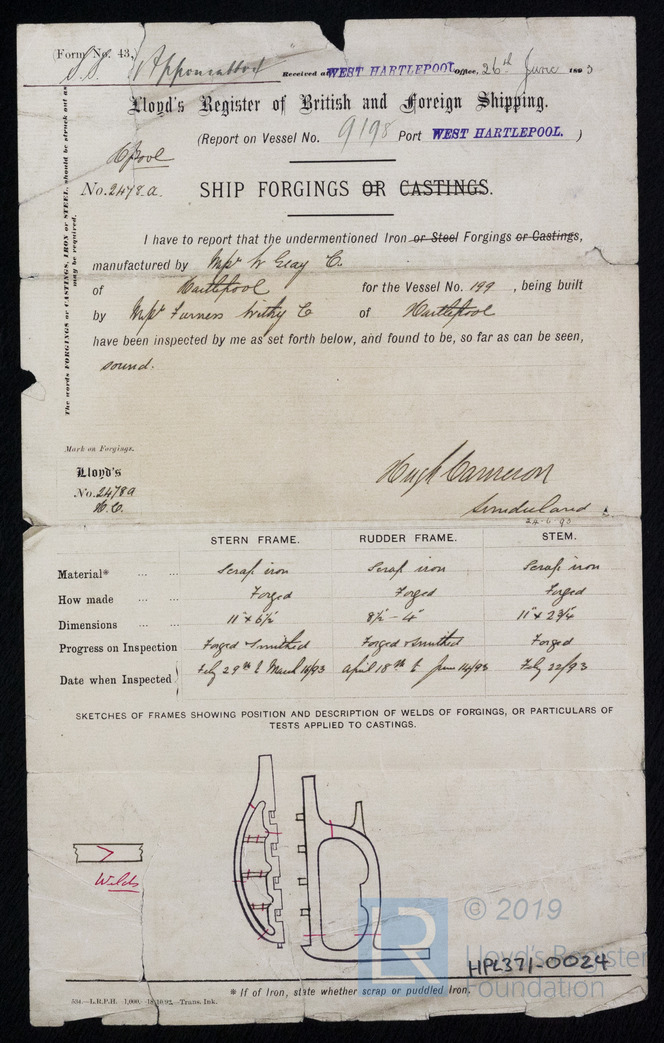 (Form No. 43.)
S.S. Appomattox
Received at WEST HARTLEPOOL Office, 26th June 1893
Lloyd's Register of British and Foreign Shipping.
(Report on Vessel No. 9198 Port WEST HARTLEPOOL. )
H'pool
No. 2478a.
SHIP FORGINGS OR CASTINGS.
The words FORGINGS or CASTINGS, IRON or STEEL, should be struck out as
may be required.
I have to report that the undermentioned Iron or Steel Forgings or Castings,
manufactured by Messrs W Gray & Co.
of Hartlepool for the Vessel No. 199 , being built
by Messrs Furness Withy & Co of Hartlepool
have been inspected by me as set forth below, and found to be, so far as can be seen,
sound.
Mark on Forgings.
Lloyd's
No. 2478a
H.C.
Hugh Cameron
Sunderland
24-6-93
STERN FRAME. RUDDER FRAME. STEM.
Material* ... ... Scrap iron Scrap iron Scrap iron
How made ... ... Forged Forged Forged
Dimensions ... ... 11" x 6½ 8½ - 4" 11" x 2¾
Progress on Inspection Forged & smithed Forged & smithed Forged
Date when Inspected Feby 29th to March 14/93 April 18th to June 14/93 Feby 22/93
SKETCHES OF FRAMES SHOWING POSITION AND DESCRIPTION OF WELDS OF FORGINGS, OR PARTICULARS OF
TESTS APPLIED TO CASTINGS.
Welds
LR
© 2019
Lloyd's Register
Foundation
HPL371-0024
* If of Iron, state whether scrap or puddled Iron.
534.—L.R.P.H. 1,000. 18/10/92.—Trans. Ink.